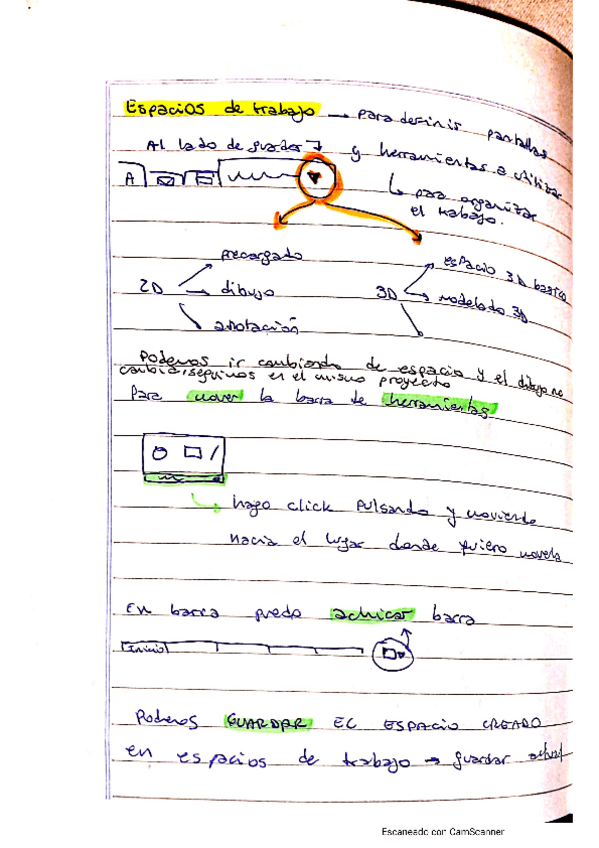 Espacios de trabajo → para definir pantallas
Al lado de guardar y herramientas a utilizar
A
↳ para organizar
el trabajo.
precargado
espacio 3D basico
2D → dibujo
3D → modelado 3D
anotación
Podemos ir cambiando de espacio y el dibujo no
cambia, seguimos en el mismo proyecto
Para mover la barra de herramientas
hago click pulsando y moviendo
hacia el lugar donde quiero moverla
En barra puedo achicar barra
Inicio
Podemos GUARDAR EL ESPACIO CREADO
en espacios de trabajo → guardar actual
Escaneado con CamScanner